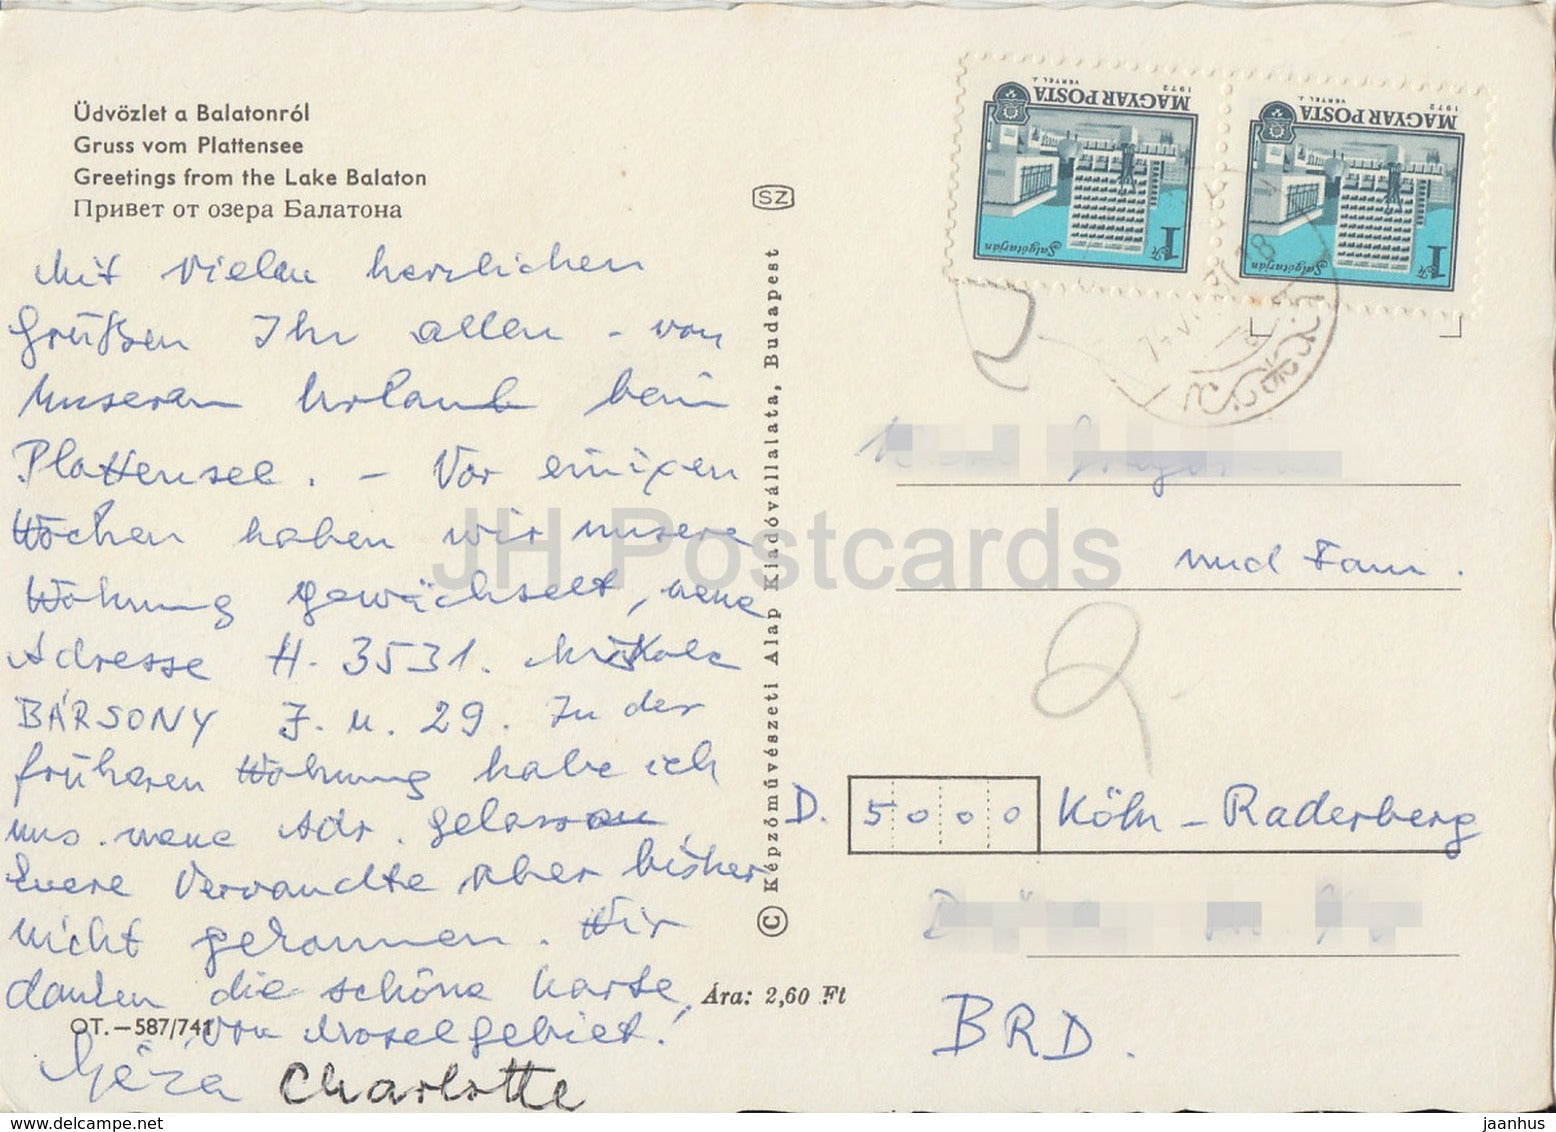 Üdvözlet a Balatonról
Gruss vom Plattensee
Greetings from the Lake Balaton
Привет от озера Балатона
Mit vielen herzlichen
Grüßen Ihr allen - von
unseren Urlaub beim
Plattensee. - Vor einigen
Wochen haben wir unsere
Wohnung gewächselt, neue
Adresse H. 3531. Miskolc
BÁRSONY J. u. 29. In der
früheren Wohnung habe ich
uns. neue Adr. gelassen,
Euere Verwandte aber bisher
nicht gekommen. Wir
danken die schöne Karte,
von Moselgebiet!
Géza Charlotte
OT.-587/741
Ára: 2,60 Ft
SZ
© Képzőművészeti Alap Kiadóvállalata, Budapest
MAGYAR POSTA
1972
VERTEL J.
Salgótarján
1 Ft
MAGYAR POSTA
1972
VERTEL J.
Salgótarján
1 Ft
und Fam.
D. 5000 Köln - Raderberg
BRD.
JH Postcards
www.delcampe.net
jaanhus